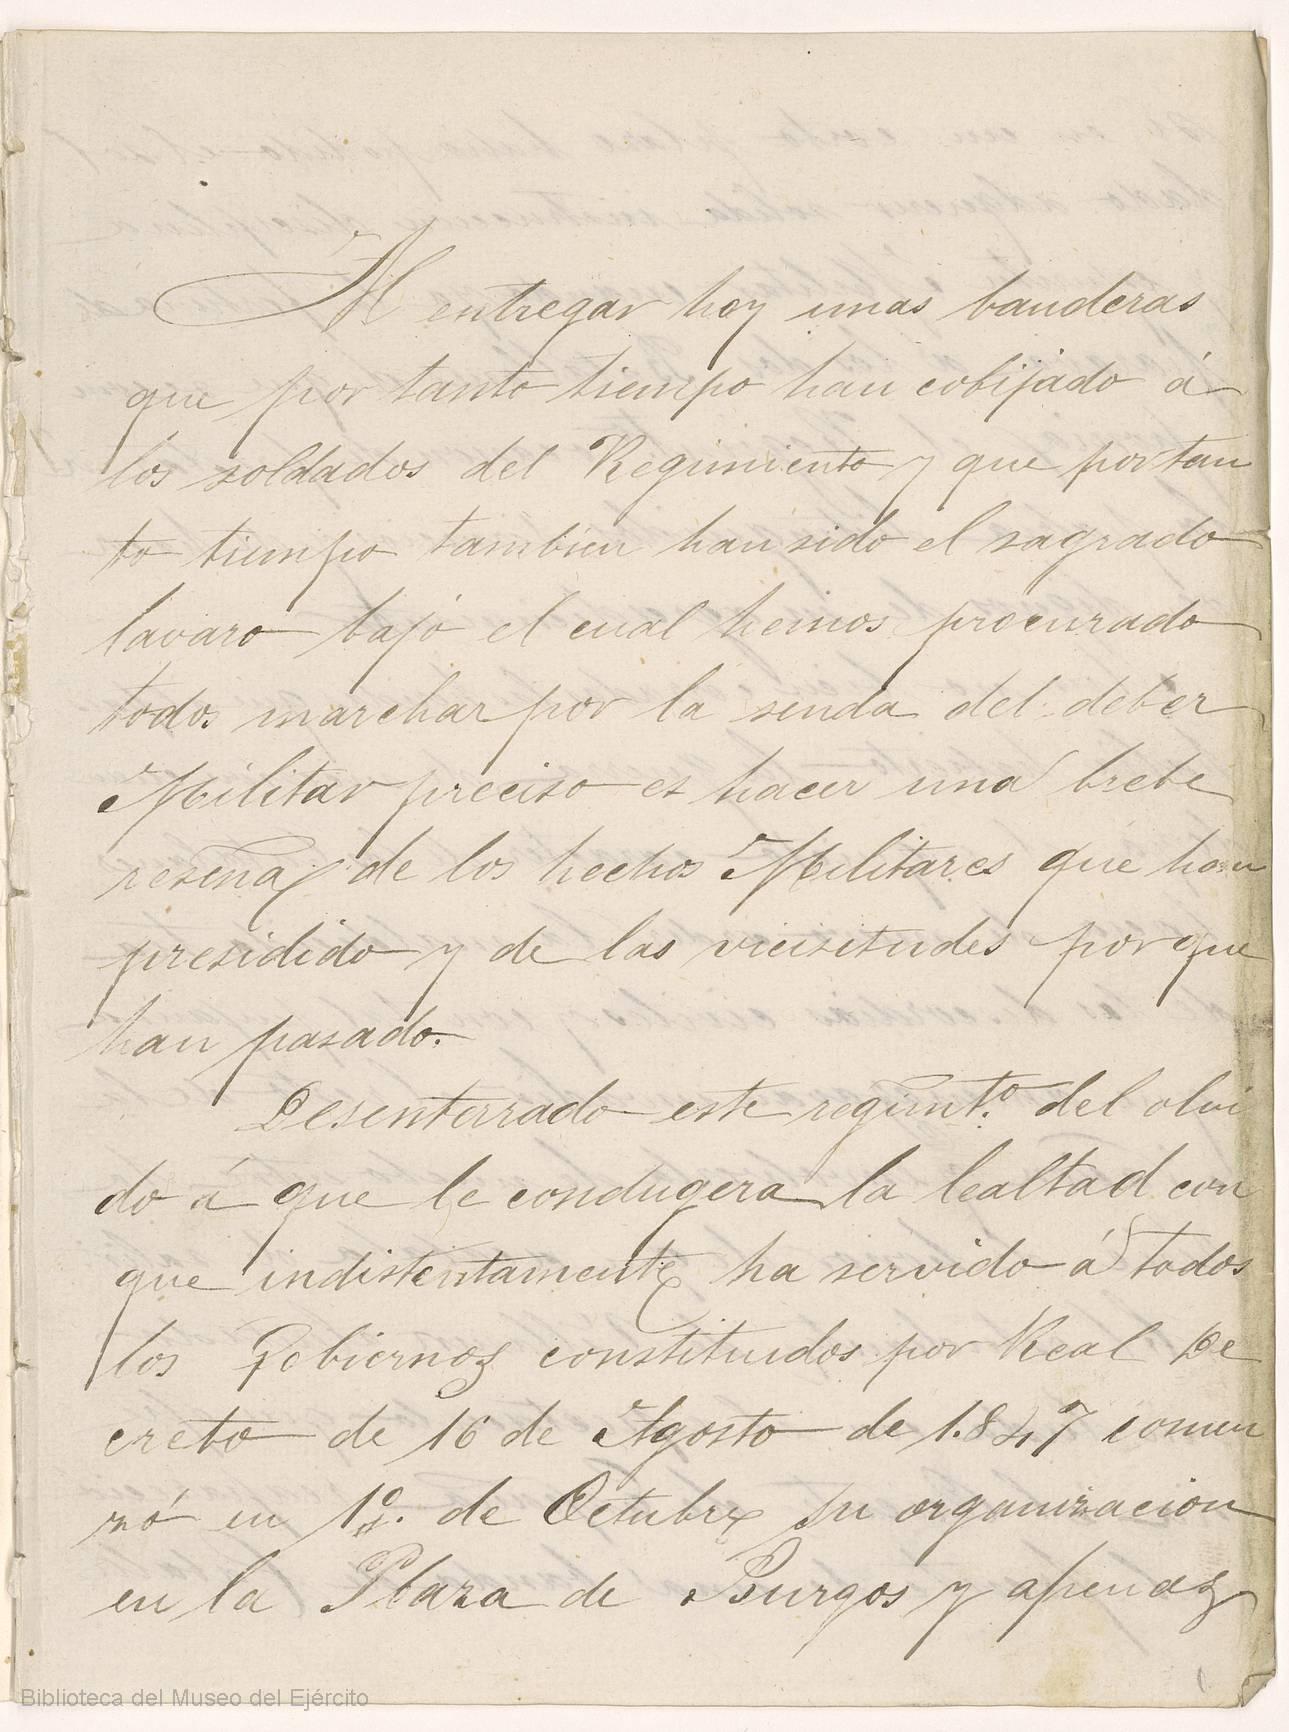 Al entregar hoy unas banderas
que por tanto tiempo han cobijado á
los soldados del Regimiento y que por tan
to tiempo tambien han sido el sagrado
lavaro bajo el cual hemos procurado
todos marchar por la senda del deber
Militar preciso es hacer una brebe
reseña de los hechos Militares que han
presidido y de las vicisitudes por que
han pasado.
Desenterrado este regimto. del olvi
do á que le condugera la lealtad con
que indistintamente ha servido á todos
los Gobiernos constituidos por Real De
creto de 16 de Agosto de 1.847 comen
zó en 1º. de Octubre su organizacion
en la Plaza de Burgos y apenas
Biblioteca del Museo del Ejército